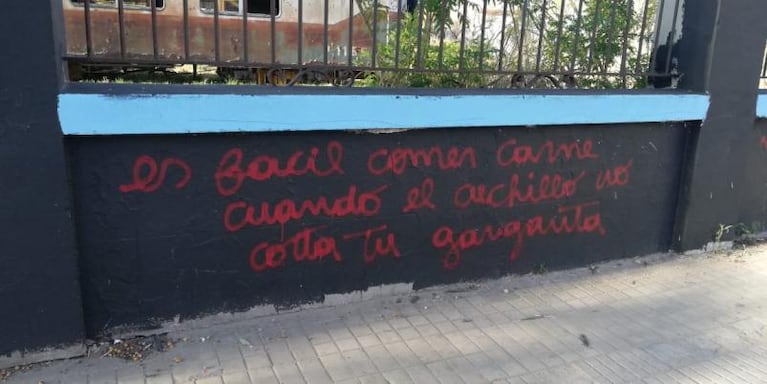 es facil comer carne
cuando el cuchillo no
cotta tu garganta